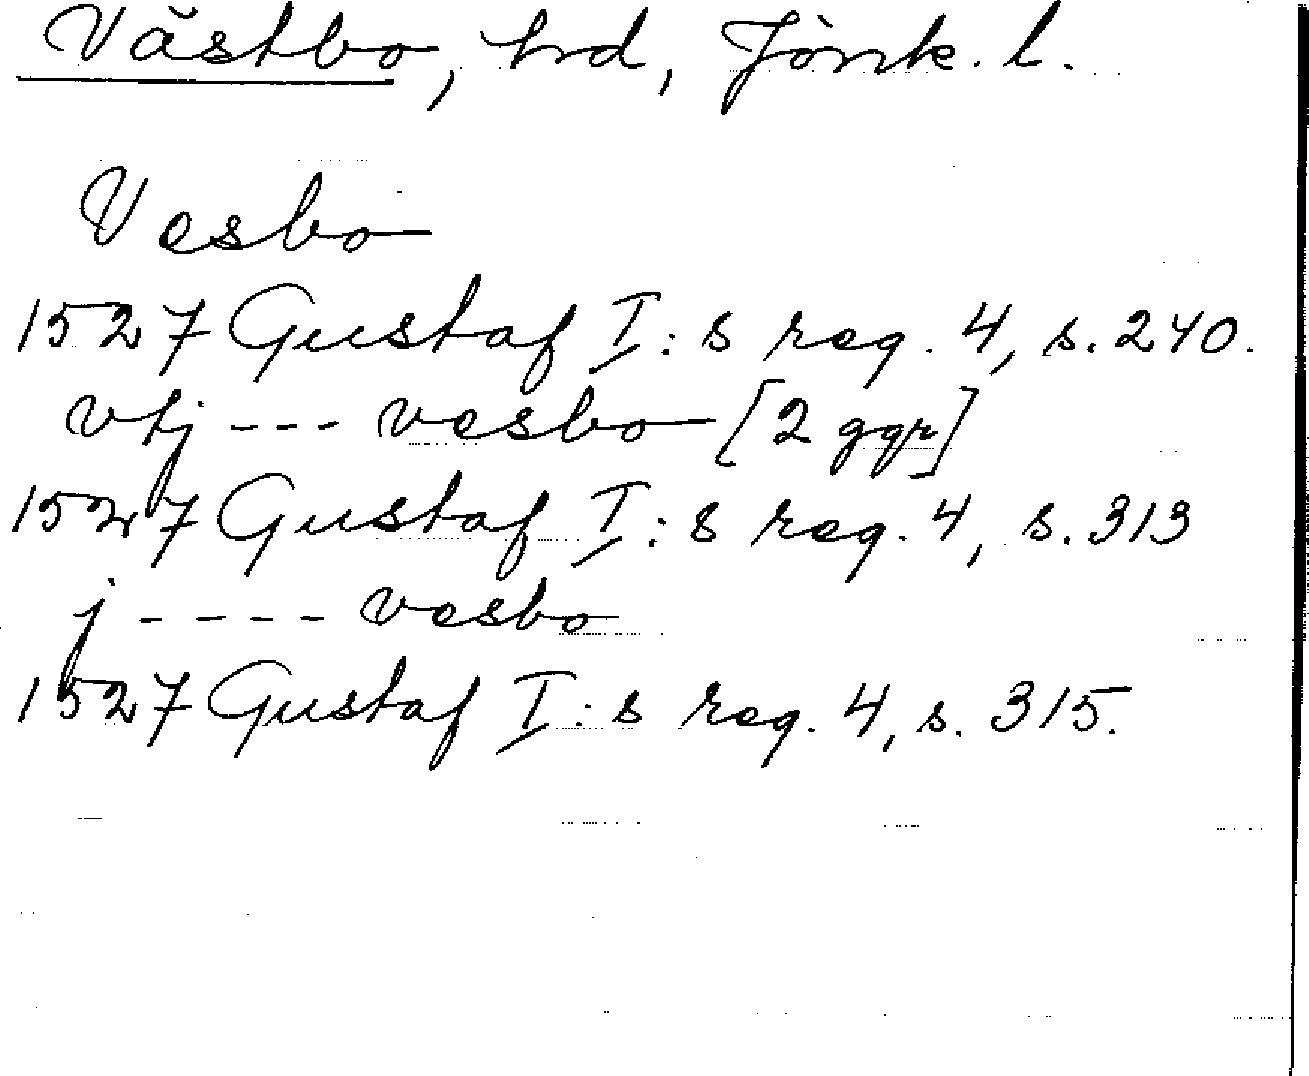 Västbo, hrd, Jönk. l.
Vesbo
1527 Gustaf I:s reg. 4, s. 240.
vtj --- vesbo [2 ggr]
1527 Gustaf I:s reg. 4, s. 313
j ---- vesbo
1527 Gustaf I:s reg. 4, s. 315.